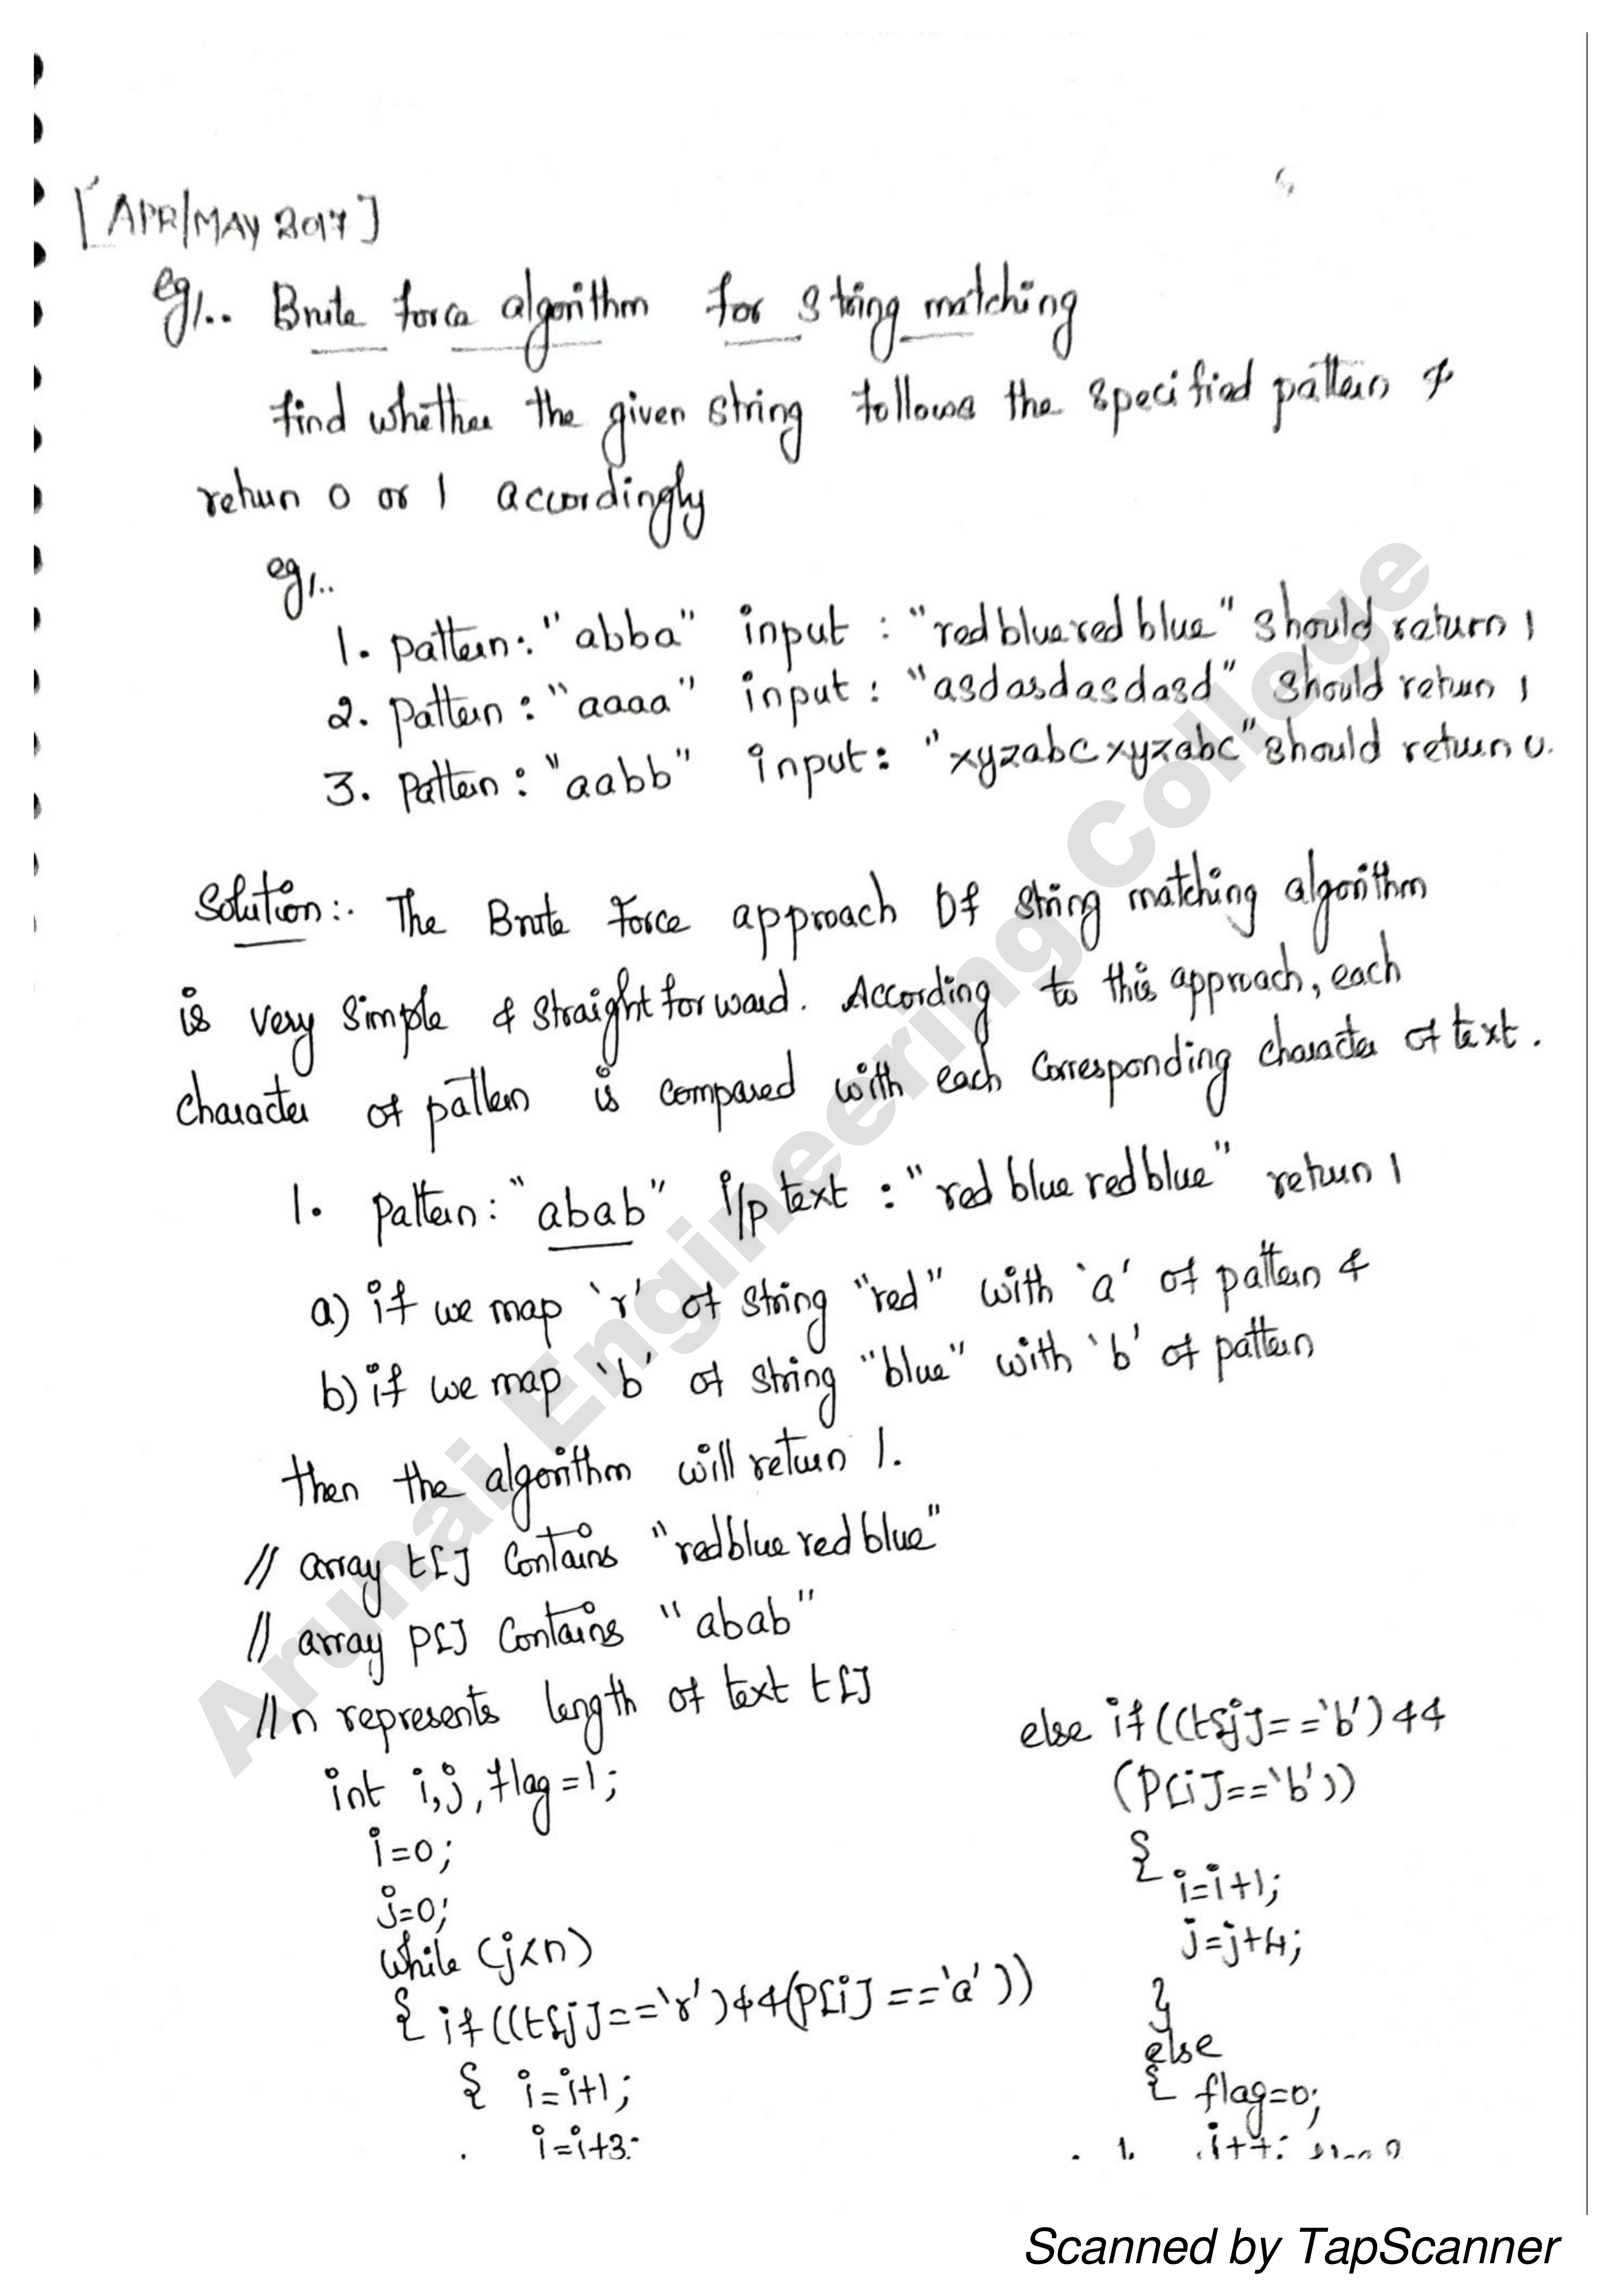 [APR/MAY 2017]
eg/.. Brute force algorithm for string matching
find whether the given string follows the specified pattern &
return 0 or 1 accordingly
eg/..
1. pattern: "abba" input : "redblueredblue" should return 1
2. pattern : "aaaa" input : "asdasdasdasd" should return 1
3. pattern : "aabb" input: "xyzabcxyzabc" should return 0.
Solution:. The Brute Force approach of string matching algorithm
is very simple & straight forward. According to this approach, each
character of pattern is compared with each corresponding character of text.
1. pattern: "abab" i/p text : "red blue redblue" return 1
a) if we map 'r' of string "red" with 'a' of pattern &
b) if we map 'b' of string "blue" with 'b' of pattern
then the algorithm will return 1.
// array t[] contains "redblue red blue"
// array P[] contains "abab"
// n represents length of text t[]
int i,j, flag=1;
i=0;
j=0;
while (j<n)
{ if((t[j]=='r')&&(P[i]=='a'))
{ i=i+1;
i=i+3;
else if((t[j]=='b')&&
(P[i]=='b'))
{
i=i+1;
j=j+4;
}
else
{ flag=0;
Arunai Engineering College
Scanned by TapScanner